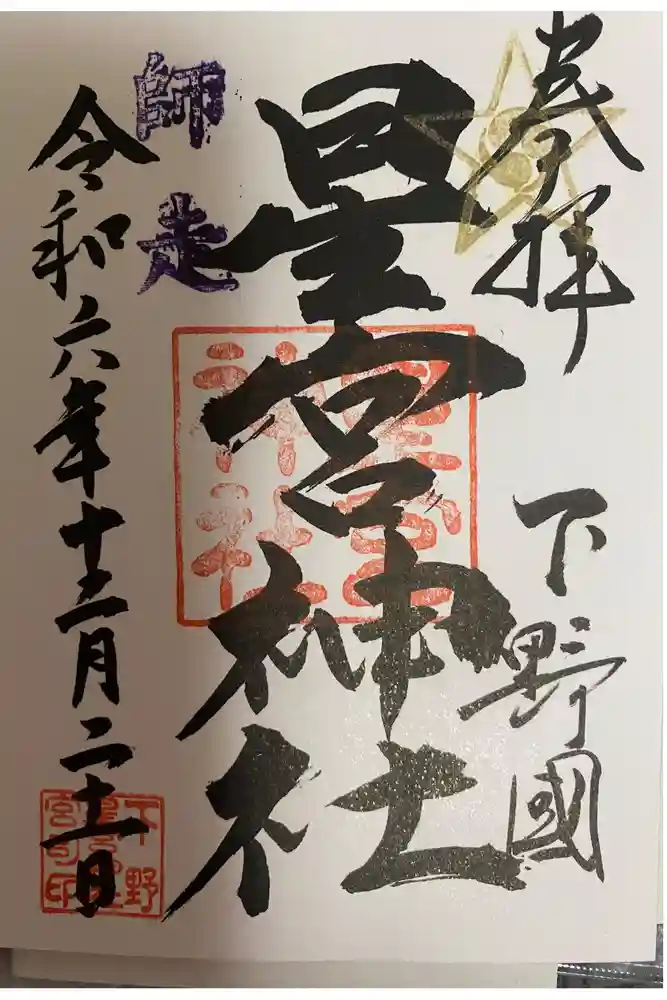 奉拝 下野國
星宮神社
星宮
神社
師走
令和六年十二月二十一日
下野
宮司印